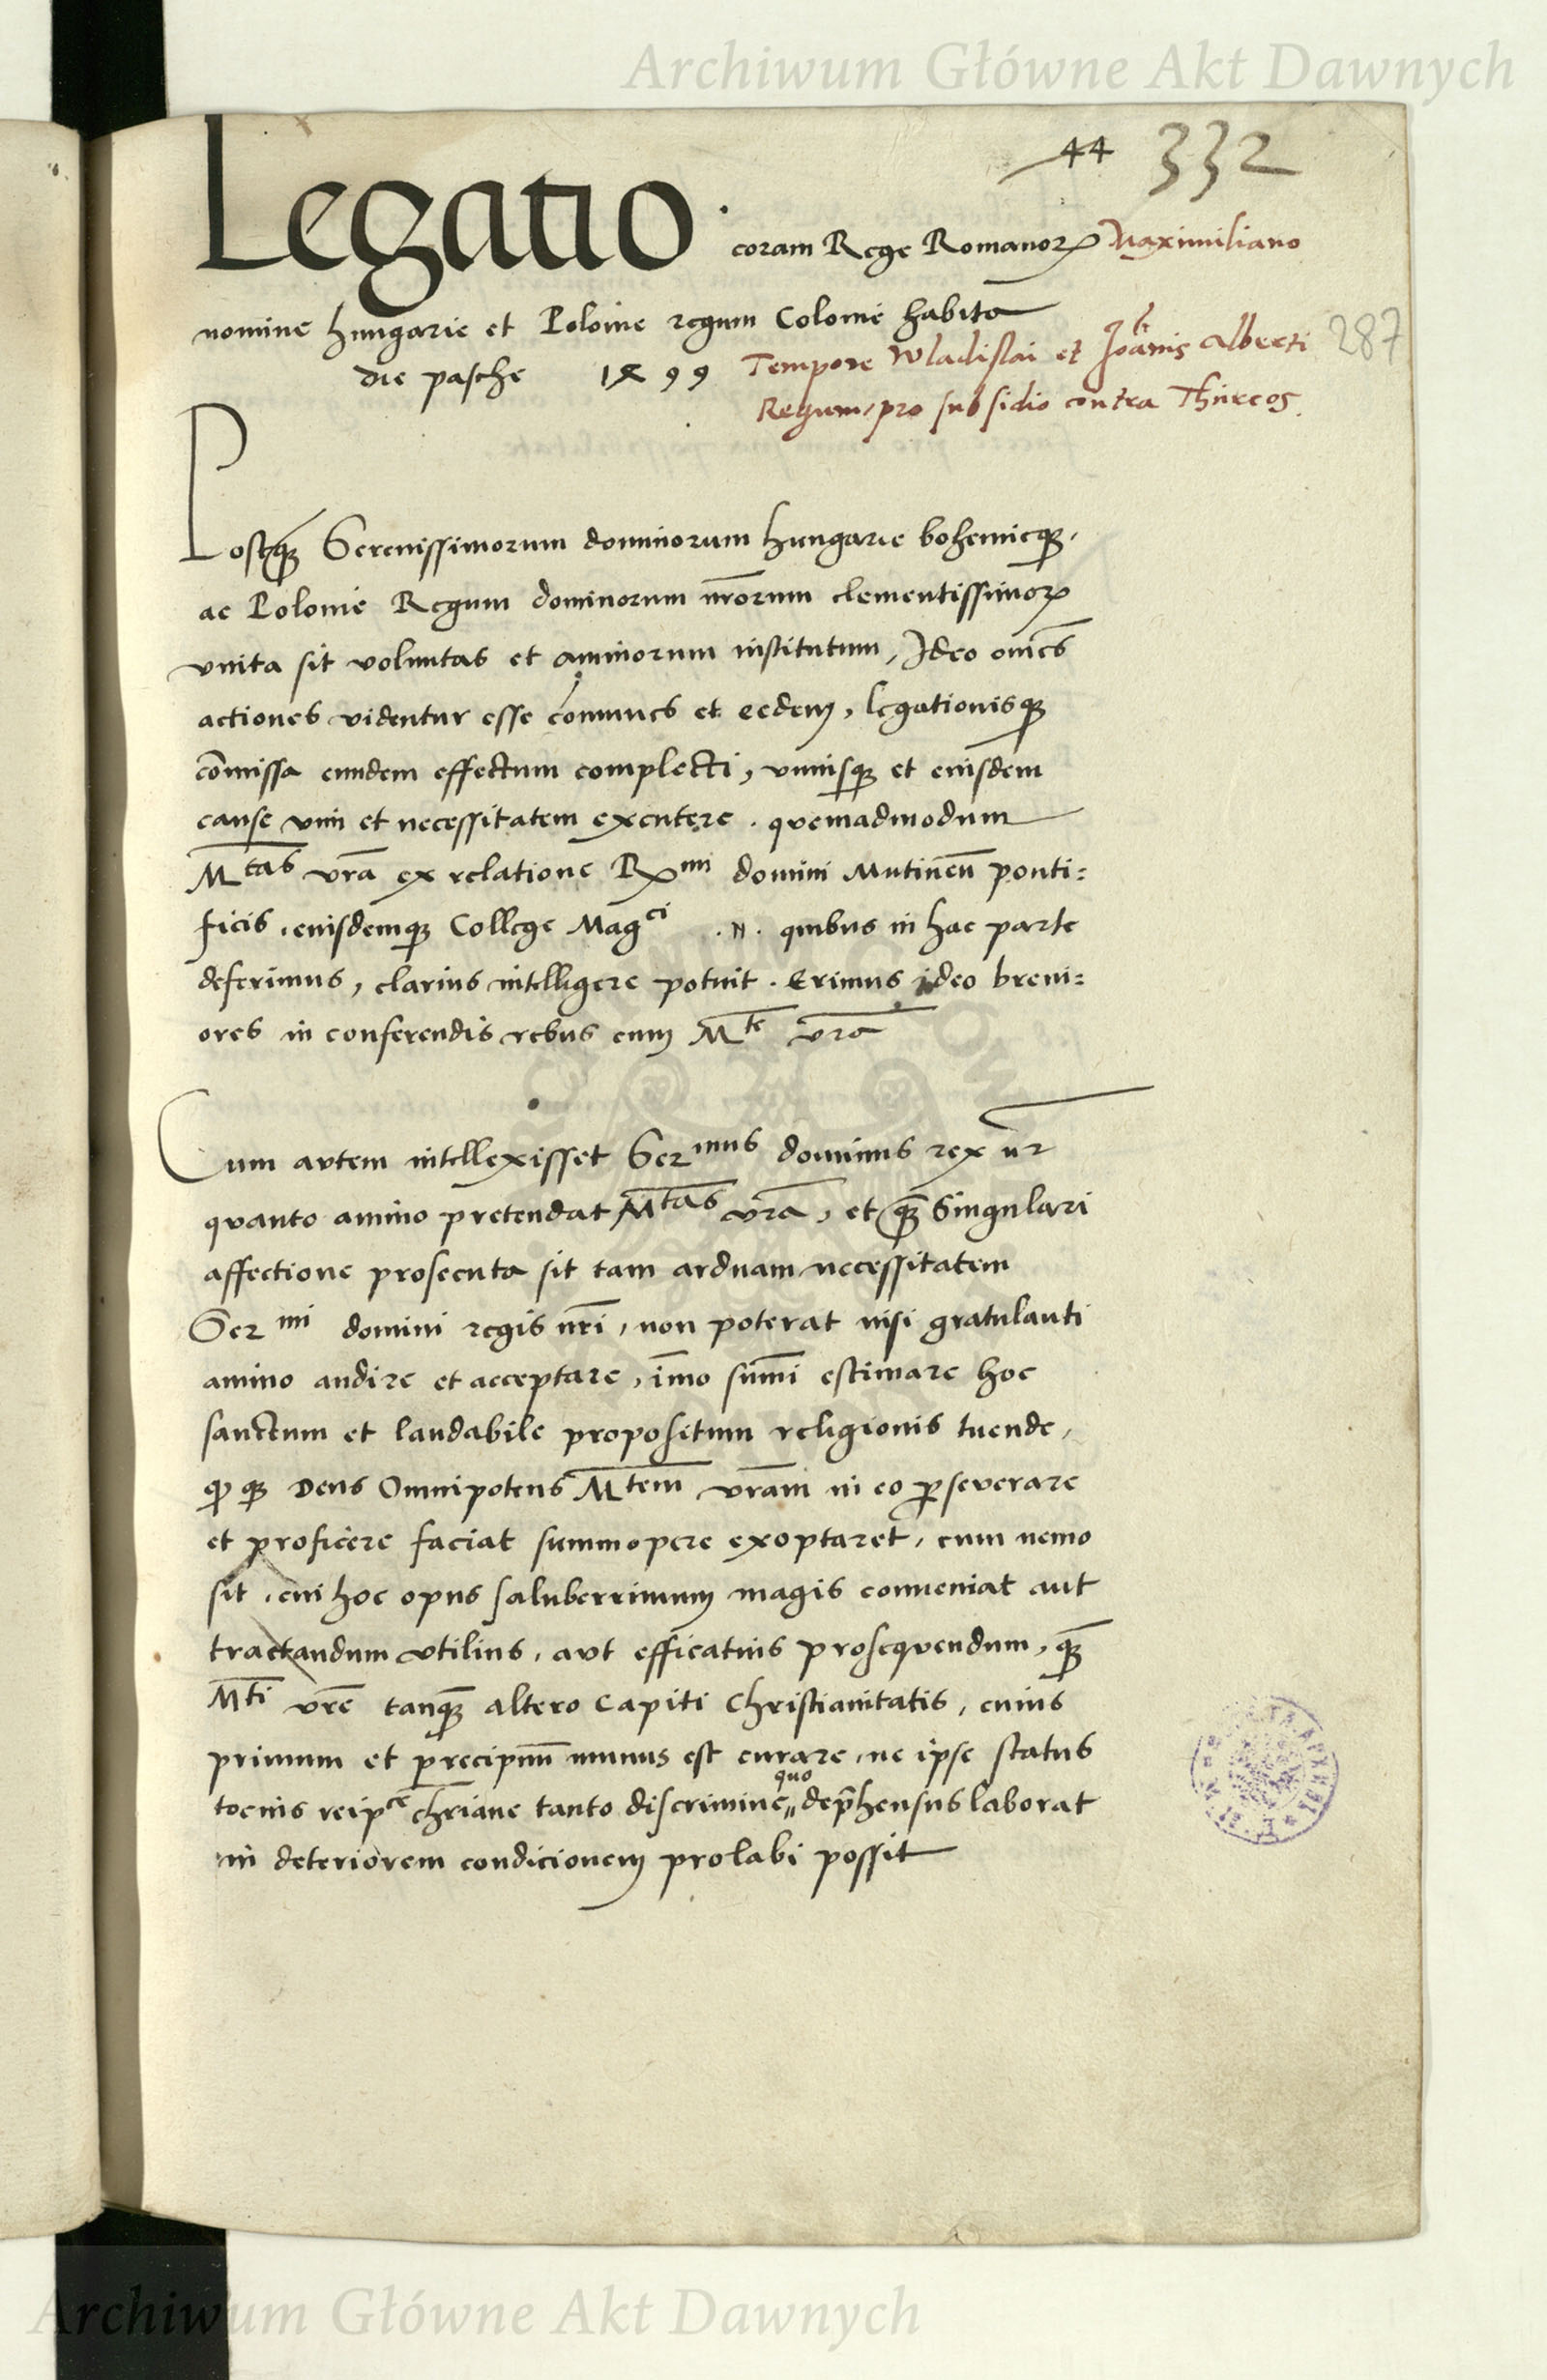 Archiwum Główne Akt Dawnych
44 332
Legatio coram Rege Romanoꝝ Maximiliano
nomine hungarie et Polonie regum Colonie habita
287
die pasche 1499 Tempore Wladislai et Joānis Alberti
Regum, pro subsidio contra Thurcos.
Postꝙ Serenissimorum dominorum hungarie bohemieqꝫ,
ac Polonie Regum dominorum nr̄orum clementissimoꝝ
vnita sit voluntas et animorum institutum, Ideo om̄es
actiones videntur esse cōmunes et eedem, legationisqꝫ
cōmissa eundem effectum complecti, vniusqꝫ et eiusdem
cause vim et necessitatem excutere . quemadmodum
Mtas vr̄a ex relatione Rmi domini Mutineñ ponti:
ficis, eiusdemqꝫ College Magci .N. quibus in hac parte
deferimus, clarius intelligere potuit . Erimus ideo brevi:
ores in conferendis rebus cum Mte vr̄a
Cum autem intellexisset Sermus dominus rex nr̄
quanto animo pretendat Mtas vr̄a, et qꝫ̄ Singulari
affectione prosecuta sit tam arduam necessitatem
Sermi domini regis nr̄i, non poterat nisi gratulanti
animo audire et acceptare, īmo sum̄i estimare hoc
sanctum et laudabile propositum religionis tuende,
ꝙ qꝫ Deus Omnipotens Mtem vr̄am in eo ꝑseverare
et proficere faciat summopere exoptaret, cum nemo
sit, cui hoc opus saluberrimum magis conveniat aut
tractandum vtilius, avt efficatius prosequendum, qꝫ̄
Mti vr̄e tanqꝫ̄ altero Capiti Christianitatis, cuius
primum et precipuū munus est curare, ne ipse status
tocius reipce chr̄iane tanto discrimine quo dep̄hensus laborat
in deteriorem condicionem prolabi possit
Archiwum Główne Akt Dawnych